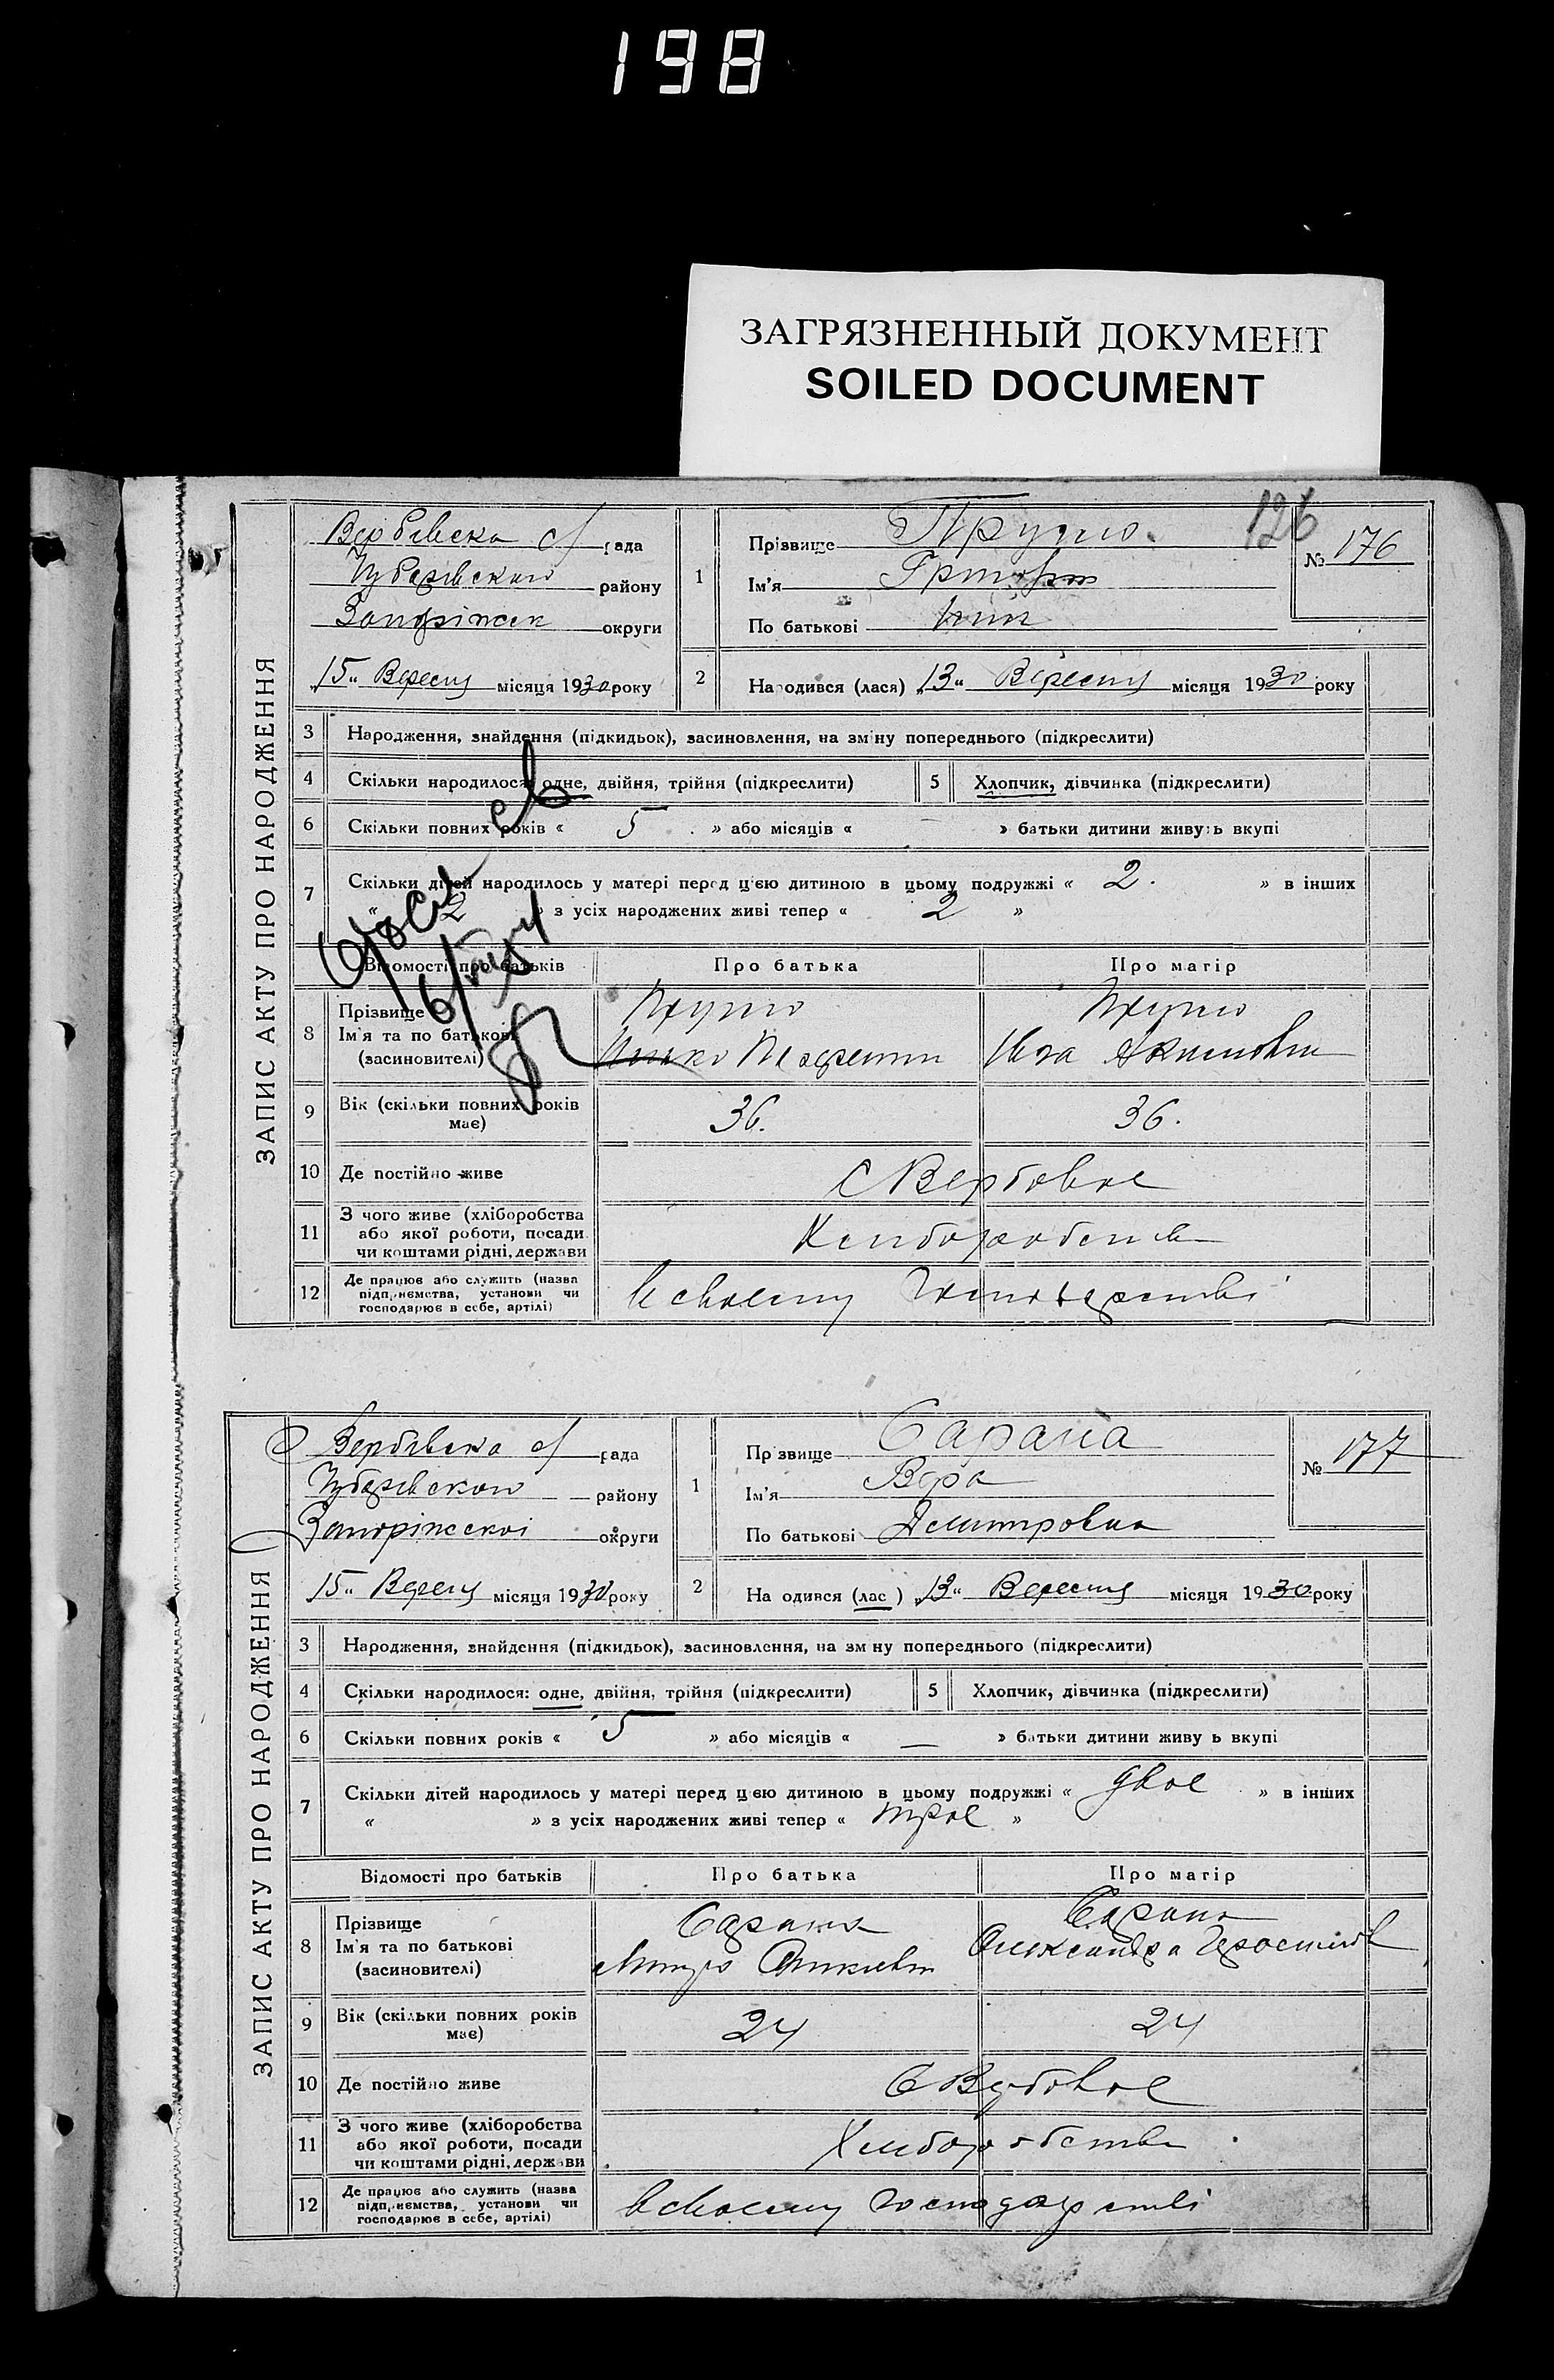 198
ЗАГРЯЗНЕННЫЙ ДОКУМЕНТ
SOILED DOCUMENT
126
ЗАПИС АКТУ ПРО НАРОДЖЕННЯ
Вербівска с/ рада
Чубарівского району
Запоріжск округи
15 „ Вересня місяця 1930 року
1 Прізвище
Ім'я
По батькові
№ 176
2 Народився (лася) „13 “ Вересня місяця 1930 року
3 Народження, знайдення (підкидьок), засиновлення, на зміну попереднього (підкреслити)
4 Скільки народилося: одне, двійня, трійня (підкреслити) 5 Хлопчик, дівчинка (підкреслити)
6 Скільки повних років « 5 » або місяців « » батьки дитини живуть вкупі
7 Скільки дітей народилось у матері перед цією дитиною в цьому подружжі « 2 » в інших
« 2 » з усіх народжених живі тепер « 2 »
Відомості про батьків Про батька Про матір
8 Прізвище
Ім'я та по батькові
(засиновителі)
9 Вік (скільки повних років має) 36. 36.
10 Де постійно живе С Вербовое
11 З чого живе (хліборобства або якої роботи, посади чи коштами рідні, держави Хлиборобства
12 Де працює або служить (назва підприємства, установи чи господарює в себе, артілі) в своему господарстві
ЗАПИС АКТУ ПРО НАРОДЖЕННЯ
Вербівска с/ рада
Чубарівского району
Запоріжскої округи
15 „ Вересня місяця 1930 року
1 Прізвище Сарана
Ім'я Вера
По батькові Дмитровна
№ 177
2 Народився (лас ) „13 “ Вересня місяця 1930 року
3 Народження, знайдення (підкидьок), засиновлення, на зміну попереднього (підкреслити)
4 Скільки народилося: одне, двійня, трійня (підкреслити) 5 Хлопчик, дівчинка (підкреслити)
6 Скільки повних років « 5 » або місяців « — » батьки дитини живуть вкупі
7 Скільки дітей народилось у матері перед цією дитиною в цьому подружжі « двое » в інших
« » з усіх народжених живі тепер « трое »
Відомості про батьків Про батька Про матір
8 Прізвище Сарана Сарана
Ім'я та по батькові Александра
(засиновителі)
9 Вік (скільки повних років має) 24 24
10 Де постійно живе С Вербовое
11 З чого живе (хліборобства або якої роботи, посади чи коштами рідні, держави Хлиборобства
12 Де працює або служить (назва підприємства, установи чи господарює в себе, артілі) в своему господарстві